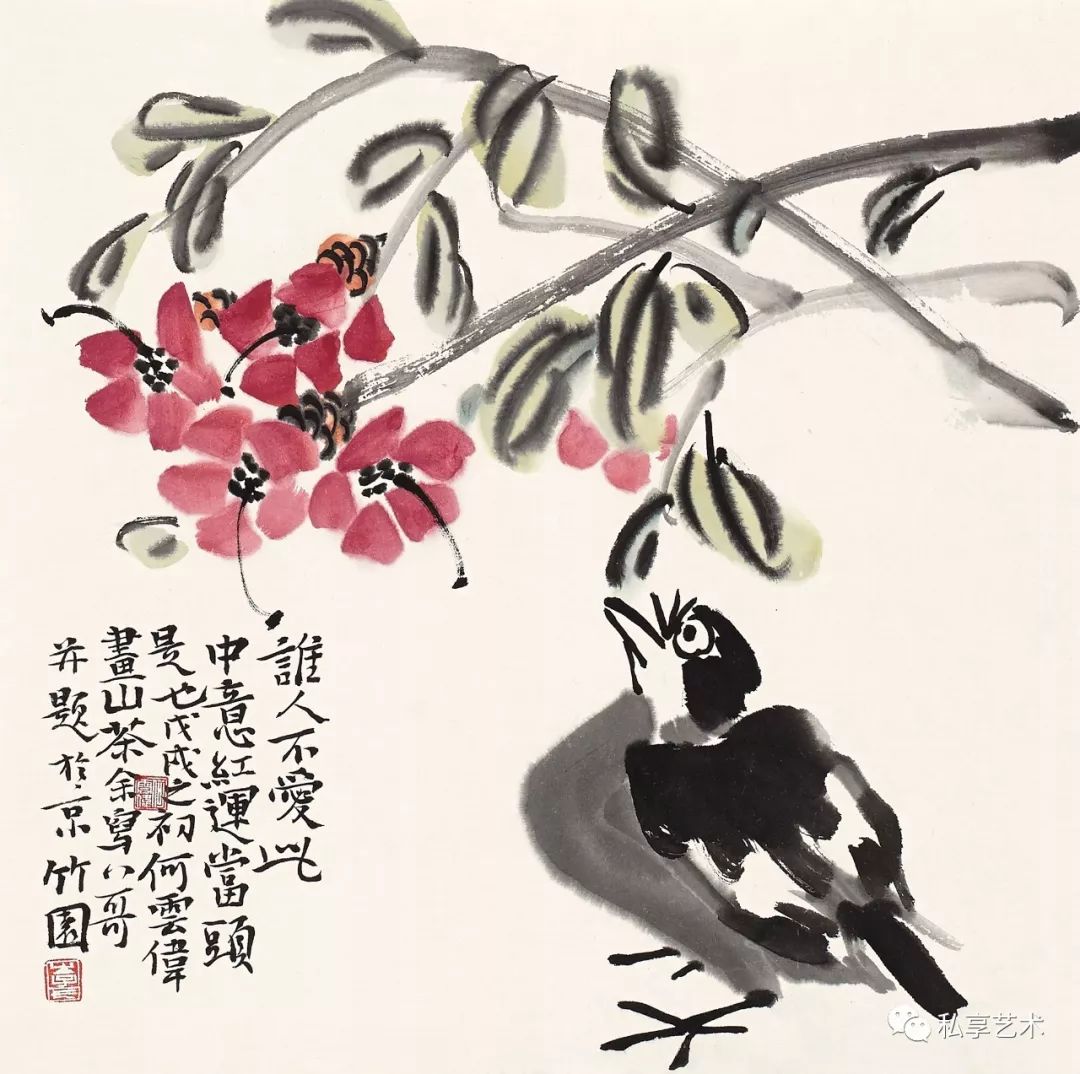 誰人不愛此
中意紅運當頭
是也戊戌之初何雲偉
畫山茶余寫八哥
并題於京竹園
私享艺术